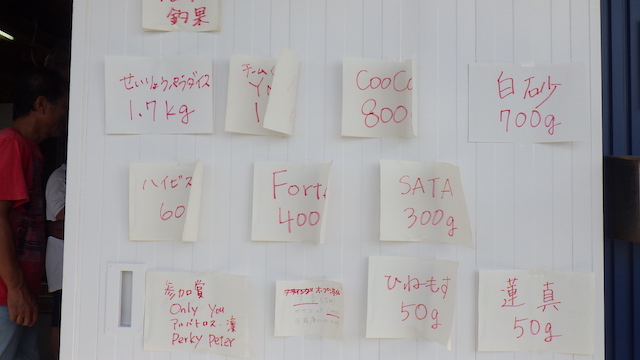 釣果
せいりょうパラダイス
1.7kg
チーム
白砂
700g
ハイビス
60
Fort
400
SATA
300g
CooCo
800
参加賞
Only You
アルバトロス・濱
Perky Peter
ひねもす
50g
蓮真
50g